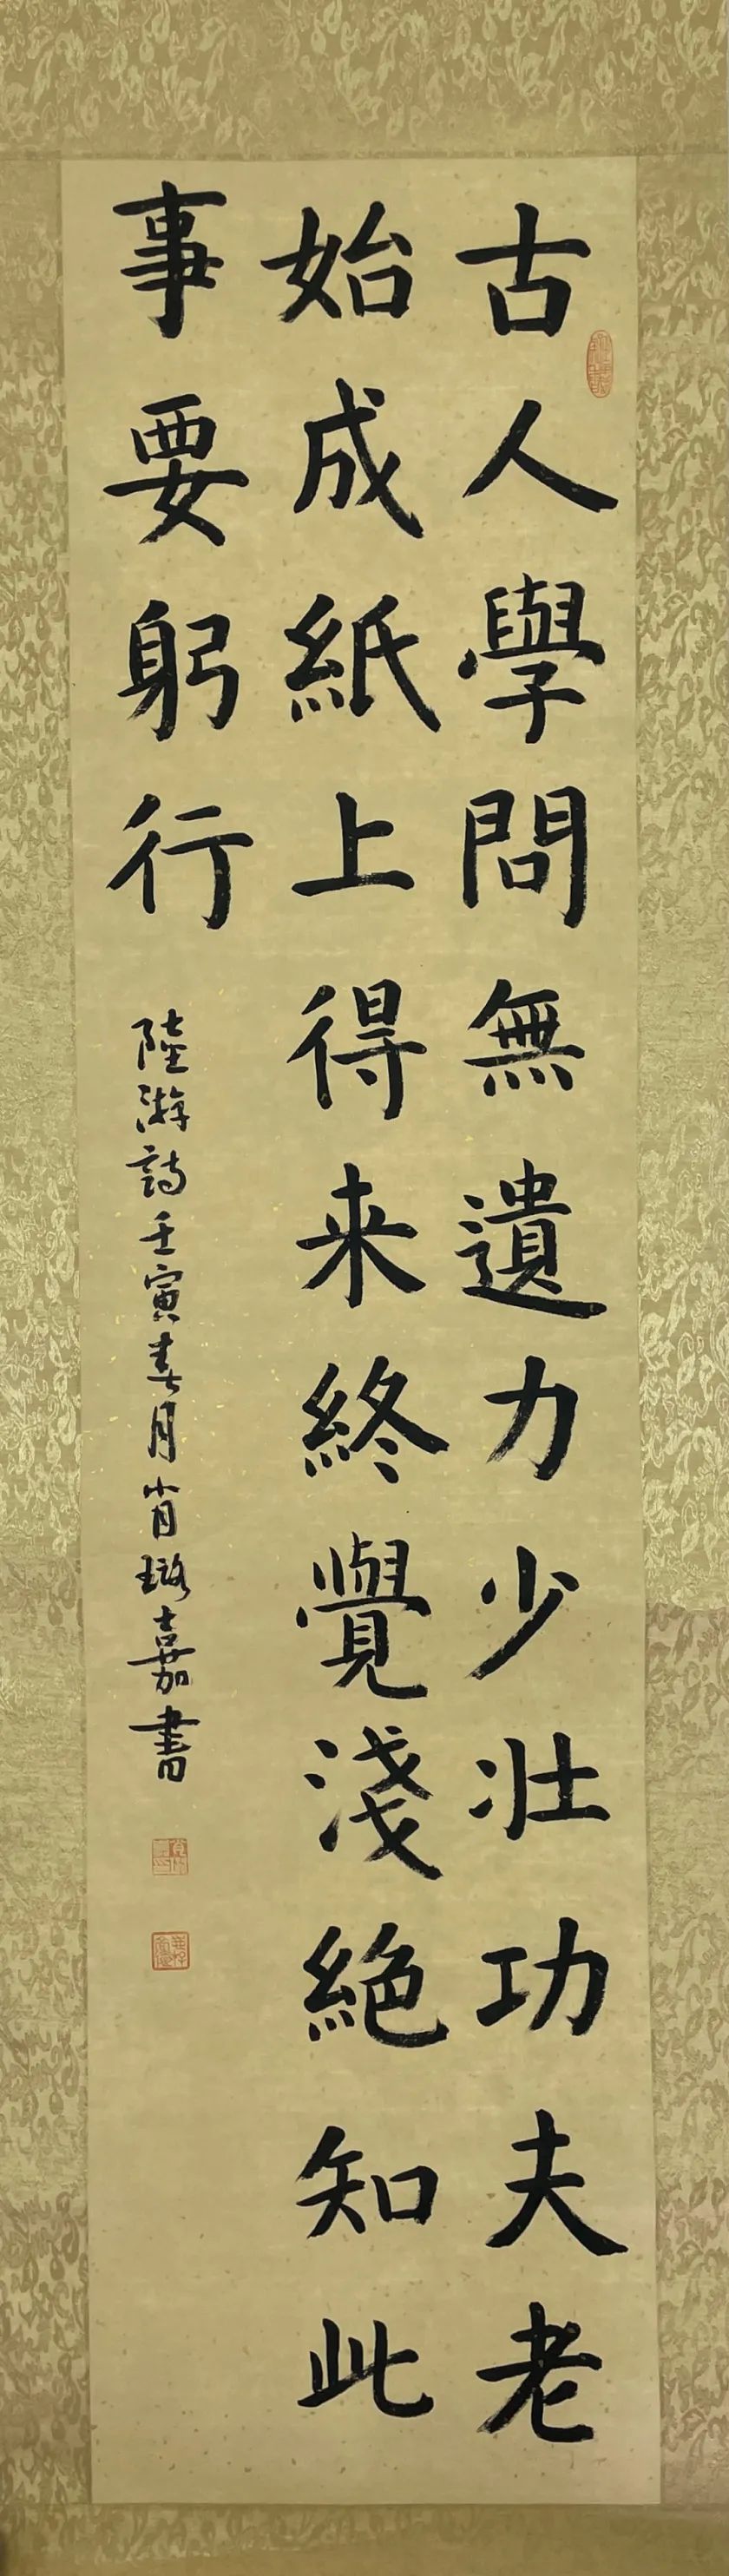 古人學問無遺力少壯功夫老
始成紙上得来終覺淺絕知此
事要躬行
陸游詩壬寅春月肖璐嘉書